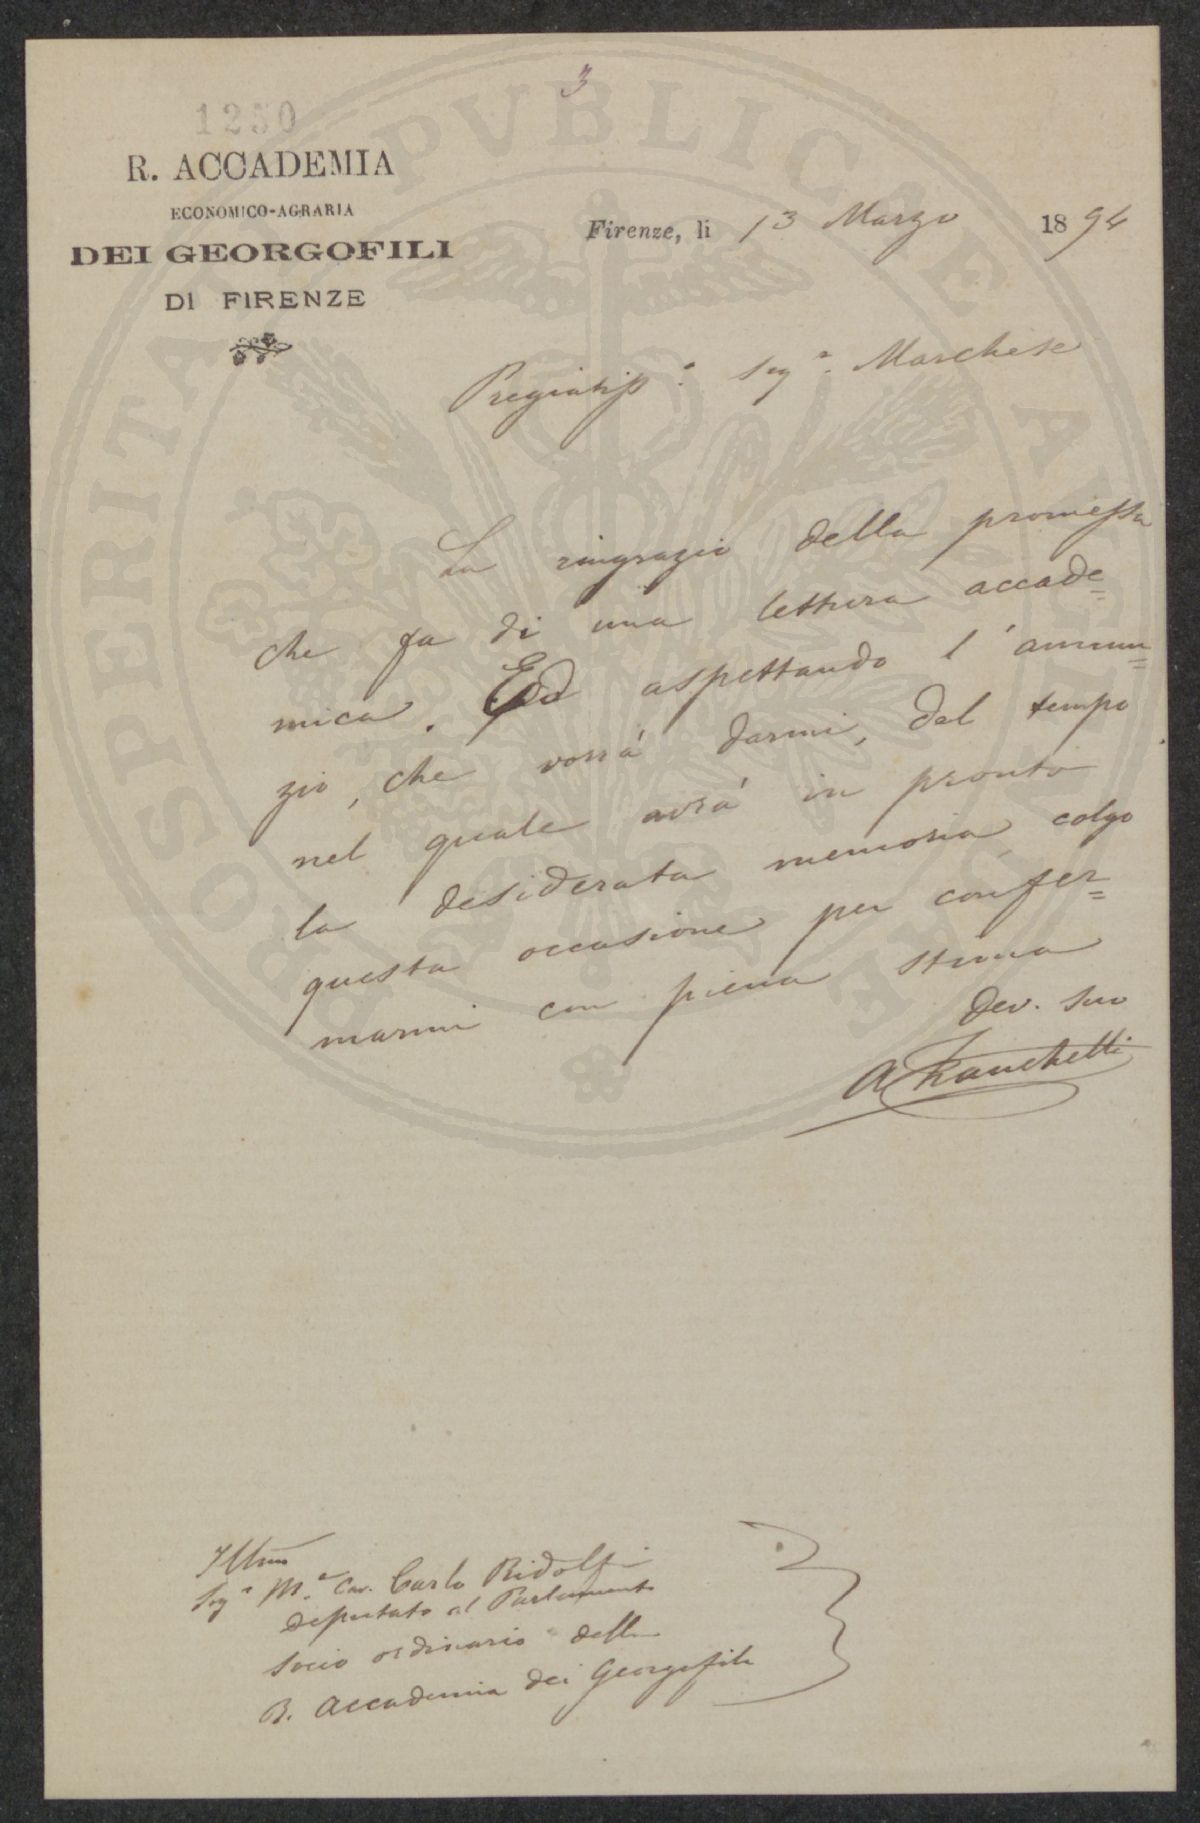 3
1250
R. ACCADEMIA
ECONOMICO-AGRARIA
DEI GEORGOFILI
DI FIRENZE
Firenze, li 13 Marzo 1894
Pregiatiss.º Sigr. Marchese
La ringrazio della promessa
che fa di una lettura accade=
mica. Ed aspettando l'annun=
zio, che vorrà darmi, del tempo
nel quale avrà in pronto
la desiderata memoria, colgo
questa occasione per confer=
marmi con piena stima
Dev. Suo
A Franchetti
Illmo
Sigr M.e Cav. Carlo Ridolfi
deputato al Parlamento
socio ordinario della
R. Accademia dei Georgofili
PROSPERITATI PVBLICAE AVGENDAE